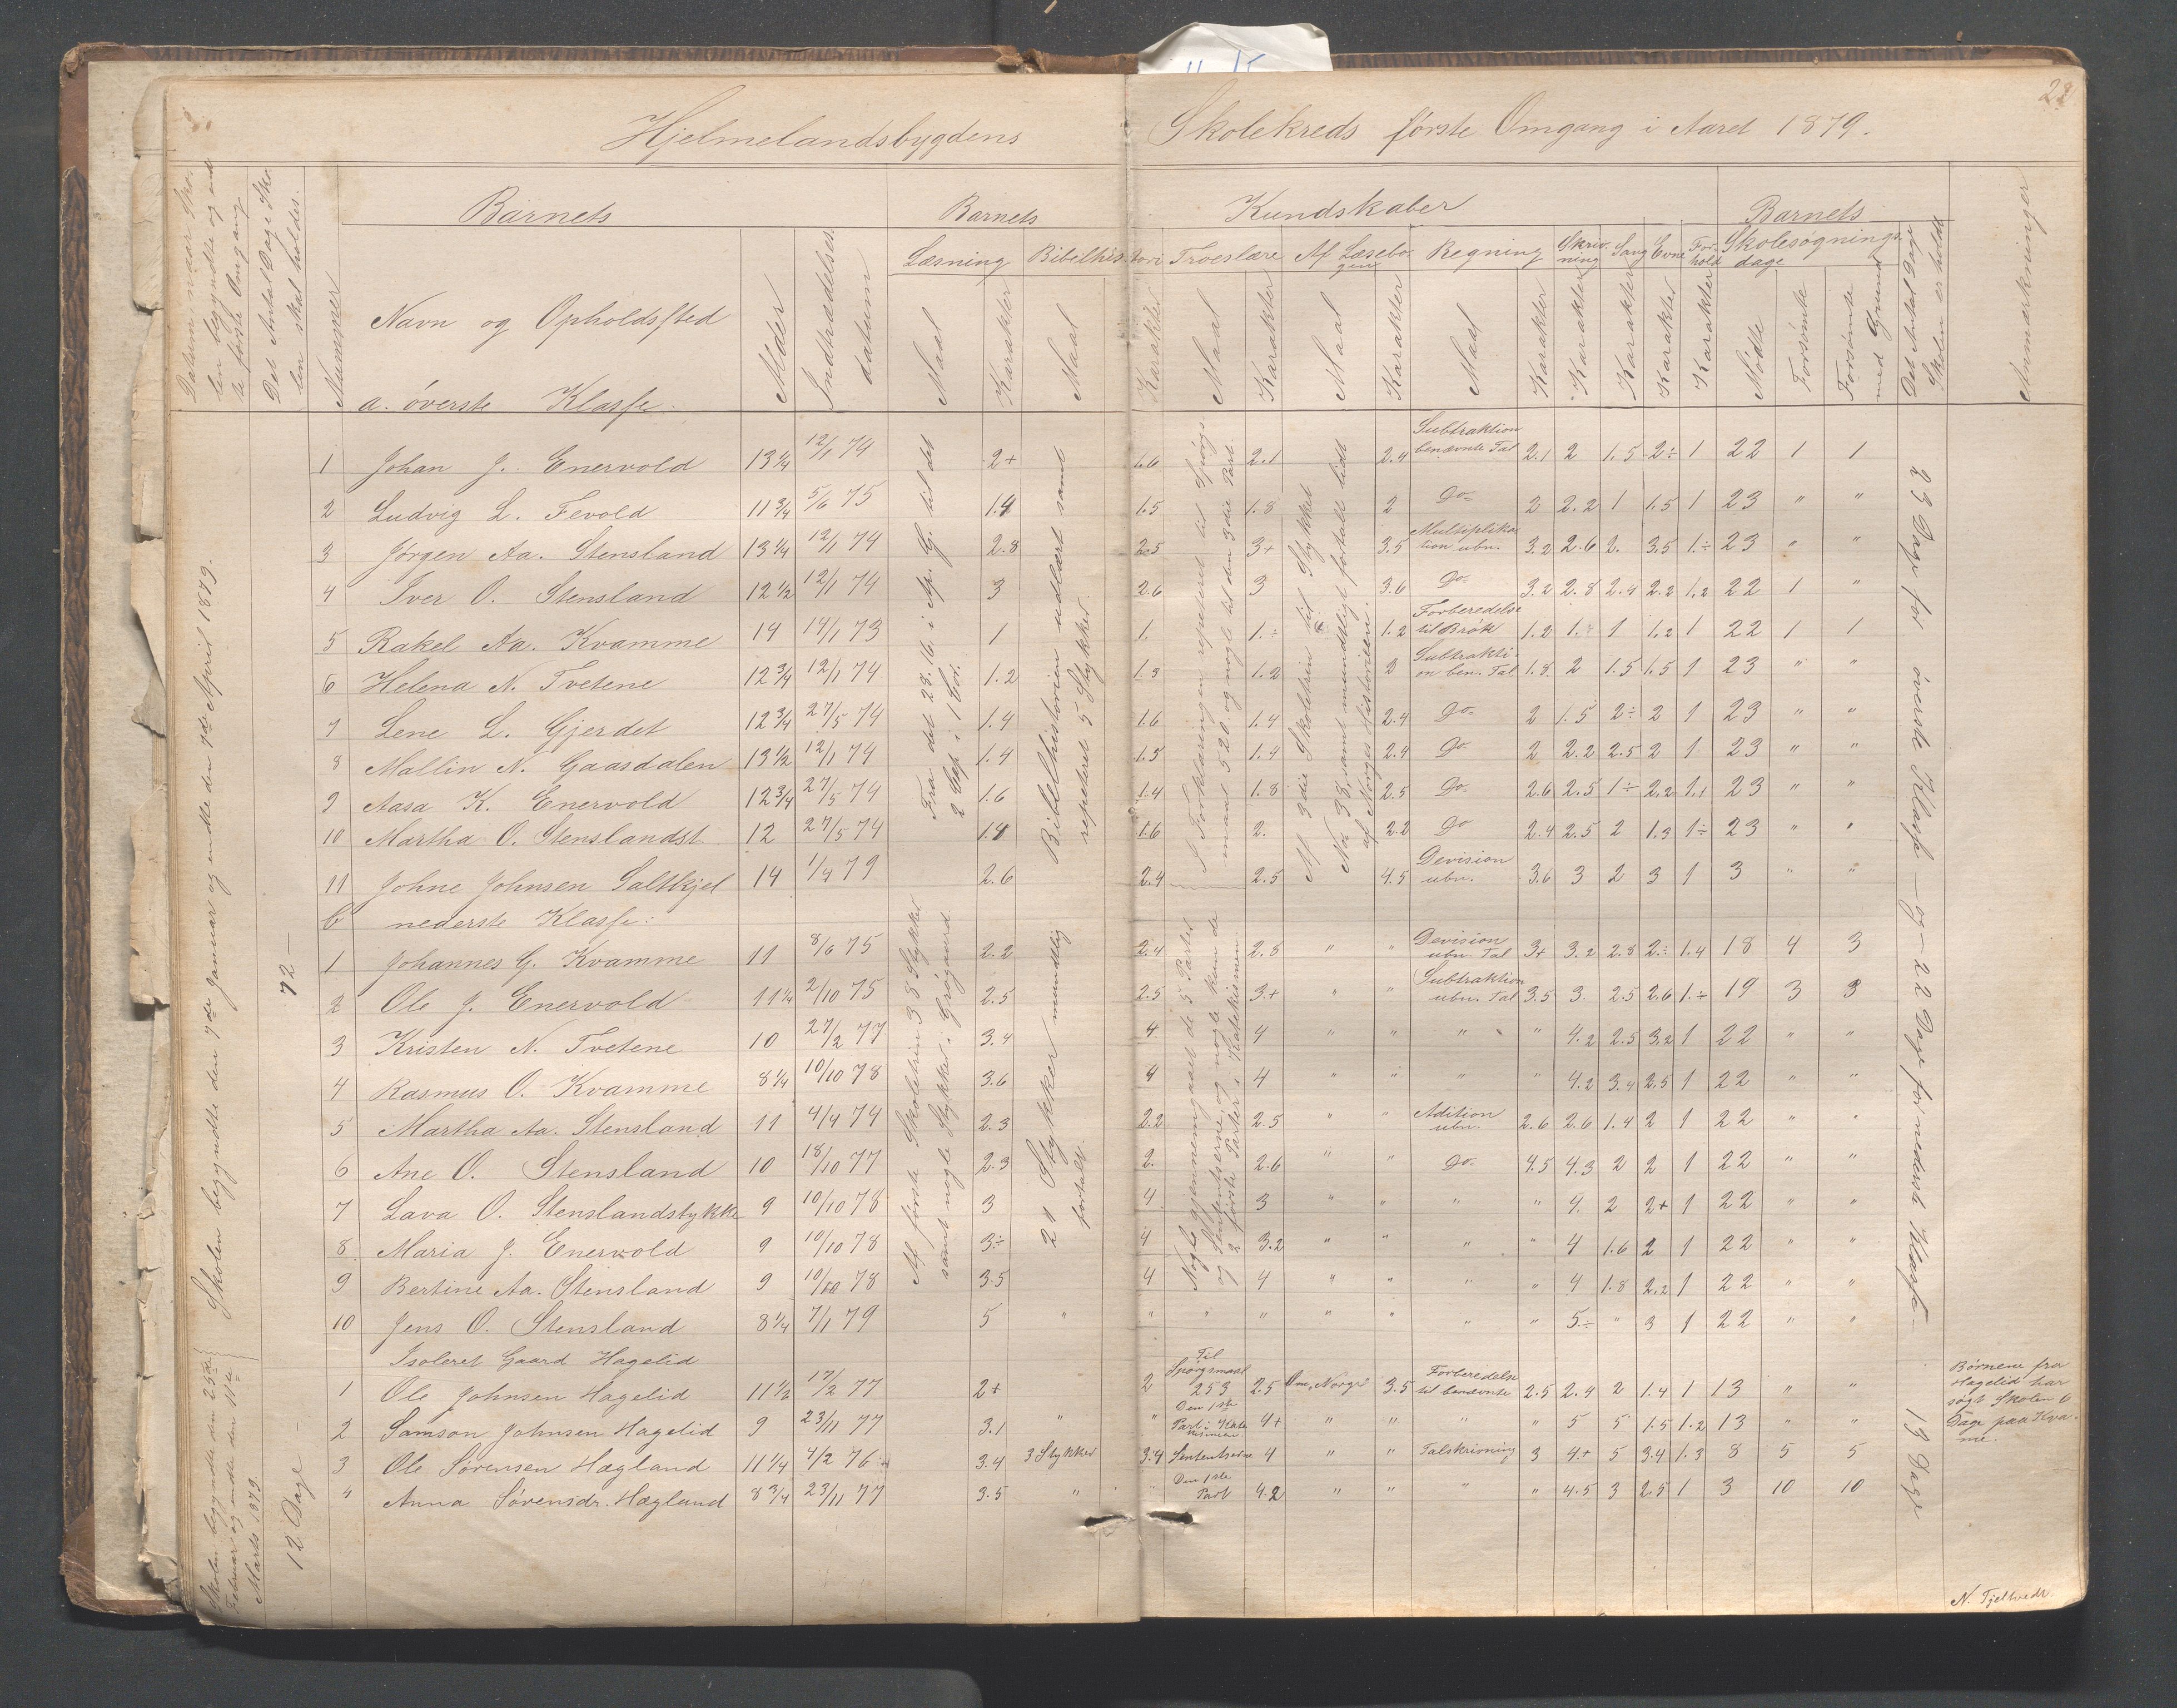 28
Hjelmelandsbygdens Skolekreds første Omgang i Aaret 1879.
Datum, naar Sko-
len begyndte og end-
te første Omgang
Det Antal Dage Sko-
len skal holdes.
Nummer
Barnets
Navn og Opholdssted
a. øverste Klasse.
Alder
Indtrædelses
datum
Barnets Kundskaber
Læsning Bibelhistori Troeslære Af Læsebo-
gen Regning Skriv-
ning Sang Evne For-
hold
Maal Karakter Maal Karakter Maal Karakter Maal Karakter Maal Karakter Karakter Karakter Karakter Karakter
Barnets
Skolesøgnings-
dage
Mødte Forsømte Forsømte
med Grund
Det Antal Dage
Skolen er holdt
Anmærkninger
Skolen begyndte den 7de Januar og endte den 7de April 1879.
72 —
Fra det 28.16. i Ap. G. til det
2 Cap. i 1 Cor.
Bibelhistorien udlært samt
repeteret 5 Stykker.
A Forklaringen repeteret til Spørgs-
maal 520 og nogle til den 3die Part.
Af 3die Skoletrin til Stykket
No 38, samt mundtligt fortalt lidt
af Norges Historien.
23 Dage for øverste Klasse — og — 22 Dage for nederste Klasse —
1 Johan J. Enervold 13 1/4 12/1 74 2+ 1.6 2.1 2.4 Subtraktion
benævnte Tal 2.1 2 1.5 2÷ 1 22 1 1
2 Ludvig L. Fevold 11 3/4 5/6 75 1.4 1.5 1.8 2 Do- 2 2.2 1 1.5 1 23 " "
3 Jørgen Aa. Stensland 13 1/4 12/1 74 2.8 2.5 3+ 3.5 Multiplika-
tion ubn. 3.2 2.6 2. 3.5 1.÷ 23 " "
4 Iver O. Stensland 12 1/2 12/1 74 3 2.6 3 3.6 Do- 3.2 2.8 2.4 2.2 1.2 22 1 "
5 Rakel Aa. Kvamme 14 14/1 73 1 1. 1.÷ 1.2 Forberedelse
til Brøk 1.2 1.÷ 1 1.2 1 22 1 1
6 Helena N. Tvetene 12 3/4 12/1 74 1.2 1.3 1.2 2 Subtrakti-
on ben. Tal 1.8 2 1.5 1.5 1 23 " "
7 Lene L. Gjerdet 12 3/4 27/5 74 1.4 1.6 1.4 2.4 Do- 2 1.5 2÷ 2 1 23 " "
8 Mallin N. Gaasdalen 13 1/2 12/1 74 1.4 1.5 1.4 2.4 Do 2 2.2 2.5 2 1 23 " "
9 Aasa K. Enervold 12 3/4 27/5 74 1.6 1.4 1.8 2.5 Do- 2.6 2.5 1÷ 2.2 1.1 23 " "
10 Martha O. Stenslandst 12 27/5 74 1.4 1.6 2. 2.2 Do 2.4 2.5 2 1.3 1÷ 23 " "
11 Johne Johnsen Saltkjel 14 1/4 79 2.6 2.4 2.5 4.5 Devision
ubn. 3.6 3 2 3 1 3 " "
b nederste Klasse:
Af første Skoletrin 38 Stykker
samt nogle Stykker i Grøgaard.
21 Stykker mundtlig
fortalt.
Nogle gjennemgaaet de 5 Parter
og Sententserne, og nogle kun de
2 første Parter i Katekismen
1 Johannes G. Kvamme 11 8/6 75 2.2 2.4 2.8 " " Devision
ubn. Tal 3+ 3.2 2.8 2.÷ 1.4 18 4 3
2 Ole J. Enervold 11 1/4 2/10 75 2.5 2.5 3.+ " " Subtraktion
ubn. Tal 3.5 3. 2.5 2.6 1.÷ 19 3 3
3 Kristen N. Tvetene 10 27/2 77 3.4 4. 4 " " " " 4.2 2.5 3.2 1 22 " "
4 Rasmus O. Kvamme 8 1/4 10/10 78 3.6 4 4 " " " " 4.2 3.4 2.5 1 22 " "
5 Martha Aa. Stensland 11 4/4 74 2.3 2.2 2.5 " " Adition
ubn. 2.6 2.6 1.4 2 1 22 " "
6 Ane O. Stensland 10 18/10 77 2.3 2. 2.6 " " Do- 4.5 4.3 2 2 1 22 " "
7 Lava O. Stenslandstykke 9 10/10 78 3 4 3 " " " " 4. 2 2+ 1 22 " "
8 Maria J. Enervold 9 10/10 78 3÷ 4 3.2 " " " " 4 1.6 2 1 22 " "
9 Bertine Aa. Stensland 9 10/10 78 3.5 4 4 " " " " 4 1.8 2.2 1 22 " "
10 Jens O. Stensland 8 1/4 7/1 79 5 " " " " " " " " 5÷ " 3 1 22 " "
Isoleret Gaard Hagelid
Skolen begyndte den 25de
Februar og endte den 11te
Marts 1879
12 Dage —
13 Dage
1 Ole Johnsen Hagelid 11 1/2 17/2 77 2+ 2 Til
Spørgsmaal
253 2.5 Om, Norge 3.5 Forberedelse
til benævnte 2.5 2.4 2 1.4 1 13 " "
2 Samson Johnsen Hagelid 9 23/11 77 3.1 " " Den 1ste
Part i Kate-
kismen 4+ " " " " 5 5 1.5 1.2 13 " "
3 Ole Sørensen Hægland 11 1/4 4/2 76 3.4 3 Stykker 3.4 Sententserne 4 " " Talskrivning 3 4+ 5 3.4 1.3 8 5 5
4 Anna Sørensdr. Hægland 8 3/4 23/11 77 3.5 " " Den 1ste
Part 4.2 " " " " 4.5 3 2.5 1 3 10 10
Børnene fra
Hagelid har
søgt Skolen 6
Dage paa Kva-
me.
N. Tjeltvedt